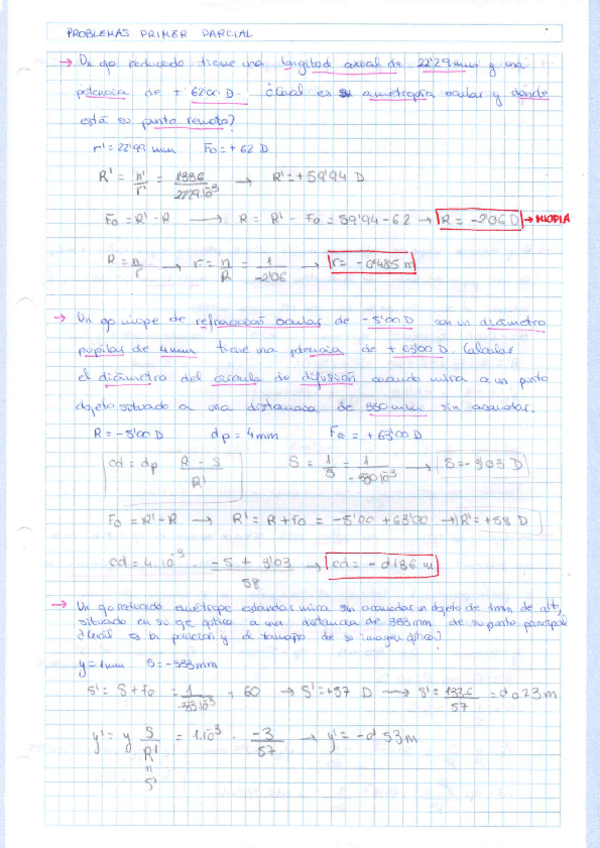 PROBLEMAS PRIMER PARCIAL
→ Un ojo reducido tiene una longitud axial de 22'29 mm y una
potencia de + 62'00 D. ¿Cual es su ametropia ocular y donde
está su punto remoto?
r' = 22'99 mm Fo = + 62 D
R' = n'/r' = 1336/22'29·10⁻³ → R' = + 59'94 D
Fo = R' - R → R = R' - Fo = 59'94 - 62 → R = -2'06 D → MIOPIA
R = n/r → r = n/R = 1/-2'06 → r = - 0'485 m
→ Un ojo miope de refracción ocular de -5'00 D con un diámetro
pupilar de 4 mm tiene una potencia de + 63'00 D. Calcular
el diámetro del círculo de difusión cuando mira a un punto
objeto situado a una distancia de 330 mm sin acomodar.
R = -5'00 D dp = 4 mm Fe = + 63'00 D
cd = dp R - S/R' S = 1/s = 1/-330·10⁻³ → S = -3'03 D
Fo = R' - R → R' = R + Fo = -5'00 + 63'00 → R' = +58 D
cd = 4·10⁻³ · -5 + 3'03/58 → cd = - 0'136 m
→ Un ojo reducido emétrope estandar mira sin acomodar un objeto de 1 mm de alto,
situado en su eje óptico a una distancia de 333 mm de su punto principal
¿Cuál es la posición y el tamaño de su imagen óptica?
y = 1 mm s = -333 mm
S' = S + Fo = 1/-333·10⁻³ + 60 → S' = +57 D → s' = 1336/57 = 0'023 m
y' = y S/R' = 1·10⁻³ · -3/57 → y' = -0'53 m
=
S'